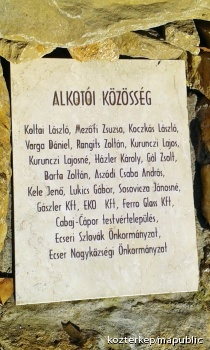 ALKOTÓI KÖZÖSSÉG
Koltai László, Mezőfi Zsuzsa, Koczkás László,
Varga Dániel, Rangits Zoltán, Kurunczi Lajos,
Kurunczi Lajosné, Házler Károly, Gál Zsolt,
Barta Zoltán, Aszódi Csaba András,
Kele Jenő, Lukics Gábor, Sosovicza Jánosné,
Gászler Kft, EKO Kft, Ferro Glass Kft,
Cabaj-Čápor testvértelepülés,
Ecseri Szlovák Önkormányzat,
Ecser Nagyközségi Önkormányzat
kozterkep/mapublic